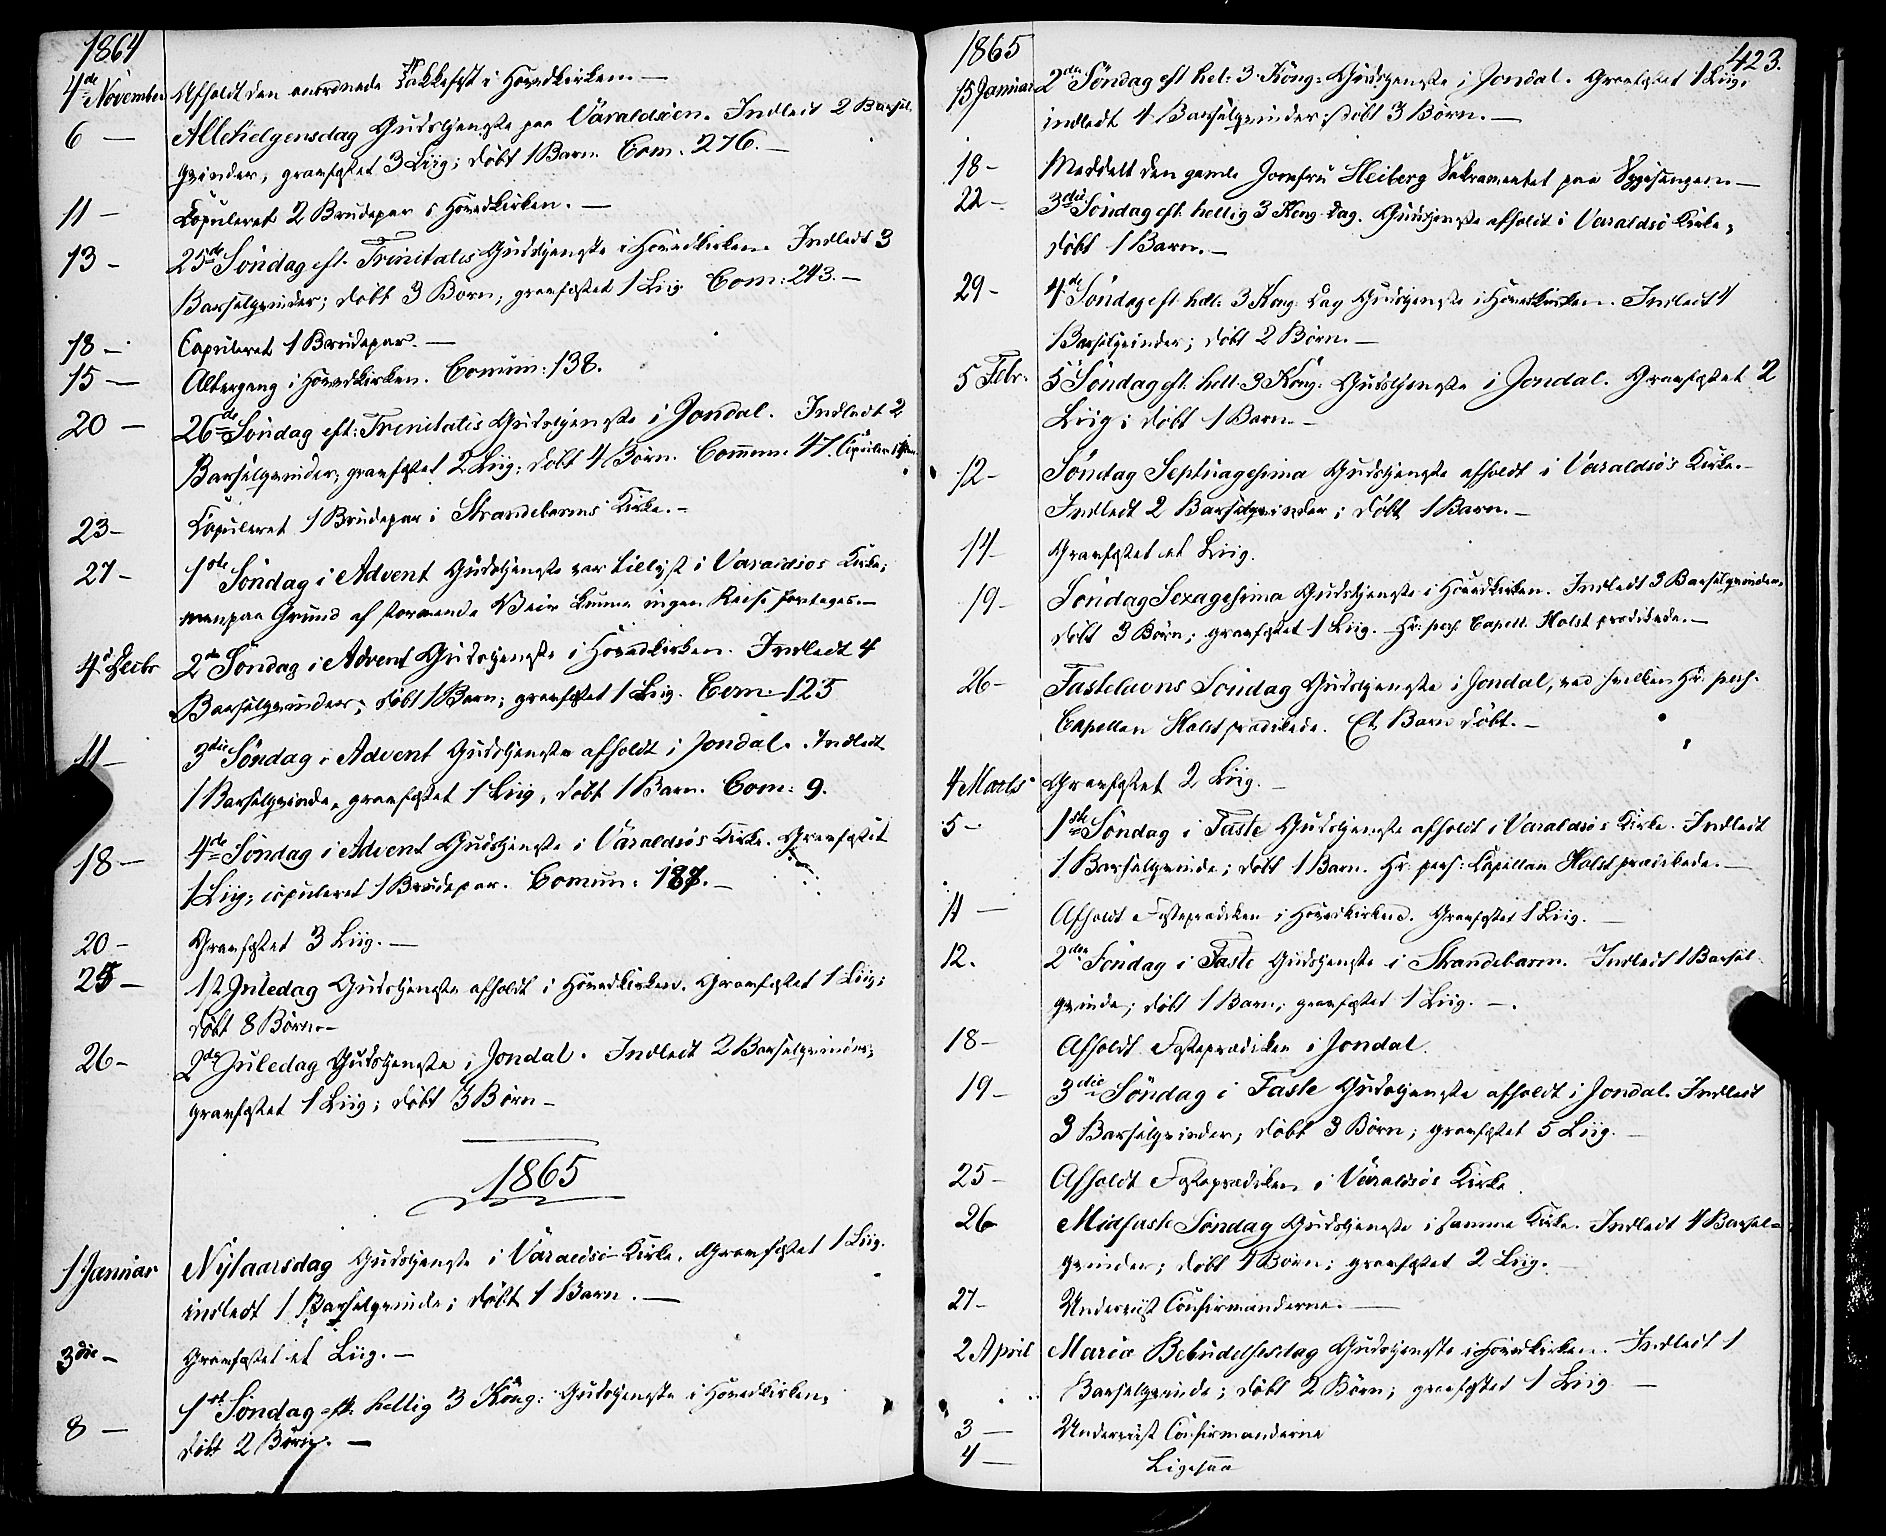 1864
4de November Afholdt den anordnede Takkefest i Hovedkirken. —
6 — Allehelgensdag Gudstjeneste paa Varaldsöen. Indledt 2 Barsel-
qvinder; gravfæstet 3 Liig; döbt 1 Barn. Com. 276. —
11 — Copuleret 2 Brudepar i Hovedkirken. —
13 — 25de Söndag eft. Trinitatis Gudstjeneste i Hovedkirken. Indledt 3
Barselqvinder; döbt 3 Börn, gravfæstet 1 Liig Com: 243. —
18 — Copuleret 1 Brudepar. —
15 — Altergang i Hovedkirken. Comun: 138.
20 — 26de Söndag eft: Trinitatis Gudstjeneste i Jondal. Indledt 2
Barselqvinder; gravfæstet 2 Liig; döbt 4 Börn. Commun. 47. Copuleret
23 — Copuleret 1 Brudepar i Strandebarms Kirke. —
27 — 1ste Söndag i Advent Gudstjeneste var tillyst i Varaldsös Kirke;
men paa Grund af stormende Veir kunne ingen Reise foretages. —
4de Decbr 2den Söndag i Advent Gudstjeneste i Hovedkirken. Indledt 4
Barselqvinder; döbt 1 Barn; gravfæstet 1 Liig. Com: 125
11 — 3die Söndag i Advent Gudstjeneste afholdt i Jondal. Indledt
1 Barselqvinde, gravfæstet 1 Liig, döbt 1 Barn. Com: 9.
18 — 4de Söndag i Advent Gudstjeneste i Varaldsös Kirke. Gravfæstet
1 Liig; copuleret 1 Brudepar. Comun: 187. —
20 — Gravfæstet 3 Liig. —
25 — 1ste Juledag Gudstjeneste afholdt i Hovedkirken. Gravfæstet 1 Liig;
döbt 8 Börn. —
26 — 2den Juledag Gudstjeneste i Jondal. Indledt 2 Barselqvinder;
gravfæstet 1 Liig; döbt 3 Börn —
1865
1 Januar Nytaarsdag Gudstjeneste i Varaldsö Kirke. Gravfæstet 1 Liig.
indledt 1 Barselqvinde; döbt 1 Barn. —
3die — Gravfæstet et Liig. —
8 — 1ste Söndag eft. hellig 3 Kong: Gudstjeneste i Hovedkirken;
döbt 2 Börn. —
1865 423.
15 Januar 2den Söndag eft hel: 3 Kong: Gudstjeneste i Jondal. Gravfæstet 1 Liig;
indledt 4 Barselqvinder; döbt 3 Börn. —
18 — Meddelt den gamle Jomfru Heiberg Sakramentet paa Sygesengen —
22 — 3die Söndag eft. hellig 3 Kong. Dag. Gudstjeneste afholdt i Varaldsö Kirke;
döbt 1 Barn. —
29 — 4de Söndag eft. hel: 3 Kong: Dag Gudstjeneste i Hovedkirken. Indledt 4
Barselqvinder; döbt 2 Börn. —
5 Febr. 5 Söndag eft. hell: 3 Kong: Gudstjeneste i Jondal. Gravfæstet 2
Liig; döbt 1 Barn. —
12 — Söndag Septuagesima Gudstjeneste afholdt i Varaldsös Kirke. —
Indledt 2 Barselqvinder; döbt 1 Barn. —
14 — Gravfæstet et Liig.
19 — Söndag Sexagesima Gudstjeneste i Hovedkirken. Indledt 3 Barselqvinder,
döbt 3 Börn; gravfæstet 1 Liig. Hr: pers. Capell. Holst prædikede. —
26 — Fastelavns Söndag Gudstjeneste i Jondal, ved hvilken Hr. pers.
Capellan Holst prædikede. Et Barn döbt. —
4 Marts Gravfæstet 2 Liig. —
5 — 1ste Söndag i Faste Gudstjeneste afholdt i Varaldsös Kirke. Indledt
1 Barselqvinde; döbt 1 Barn. Hr. pers: Capellan Holst prædikede. —
11 — Afholdt Fasteprædiken i Hovedkirken. Gravfæstet 1 Liig. —
12. 2den Söndag i Faste Gudstjeneste i Strandebarm. Indledt 1 Barsel-
qvinde; döbt 1 Barn; gravfæstet 1 Liig. —
18 — Afholdt Fasteprædiken i Jondal.
19 — 3die Söndag i Faste Gudstjeneste afholdt i Jondal. Indledt
3 Barselqvinder; döbt 3 Börn; gravfæstet 5 Liig. —
25 — Afholdt Fasteprædiken i Varaldsös Kirke.
26 Midfaste Söndag Gudstjeneste i samme Kirke. Indledt 4 Barsel-
qvinder; döbt 4 Börn; gravfæstet 2 Liig. —
27 — Underviist Confirmanderne. —
2 April Mariæ Bebudelsesdag Gudstjeneste i Hovedkirken. Indledt 1
Barselqvinde; döbt 2 Börn; gravfæstet 1 Liig —
3 — Underviist Confirmanderne
4 — Ligesaa